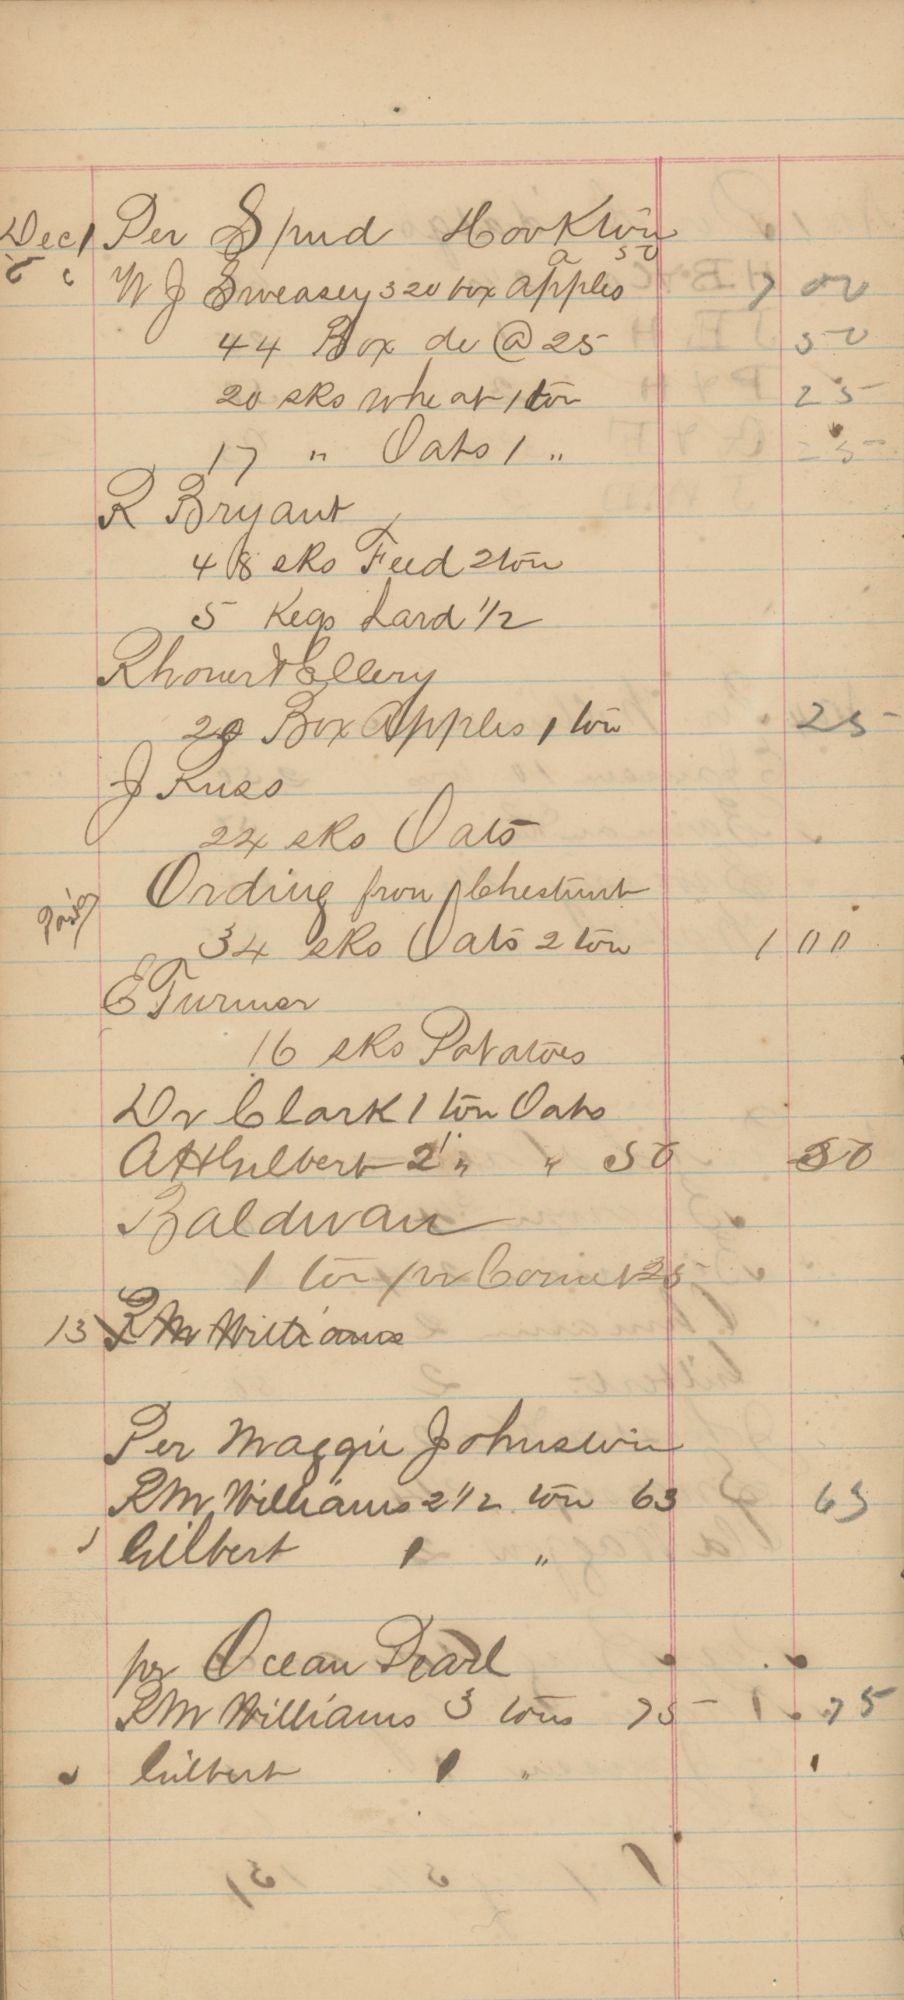 Dec 1 Per Spud Hookton
W J Sweasey 320 box apples a 50 7 00
44 Box do @ 25 50
20 sks wheat 1 ton 25
17 " Oats 1 " 25
R Bryant
48 sks Feed 2 ton
5 Kegs Lard 1/2
Rhoner & Ellery
20 Box Apples 1 ton 25
J Russ
24 sks Oats
Ording from Chestnut
34 sks Oats 2 ton 1 00
E Turner
16 sks Potatoes
Dr Clark 1 ton Oats
A H Gilbert 2 " " 50 50
Baldwan
1 ton pr Cornet 25
13 R M Williams
Per Maggie Johnson
R M Williams 2 1/2 ton 63 63
Gilbert 1 "
pr Ocean Pearl
R M Williams 3 tons 75 75
Gilbert 1 "